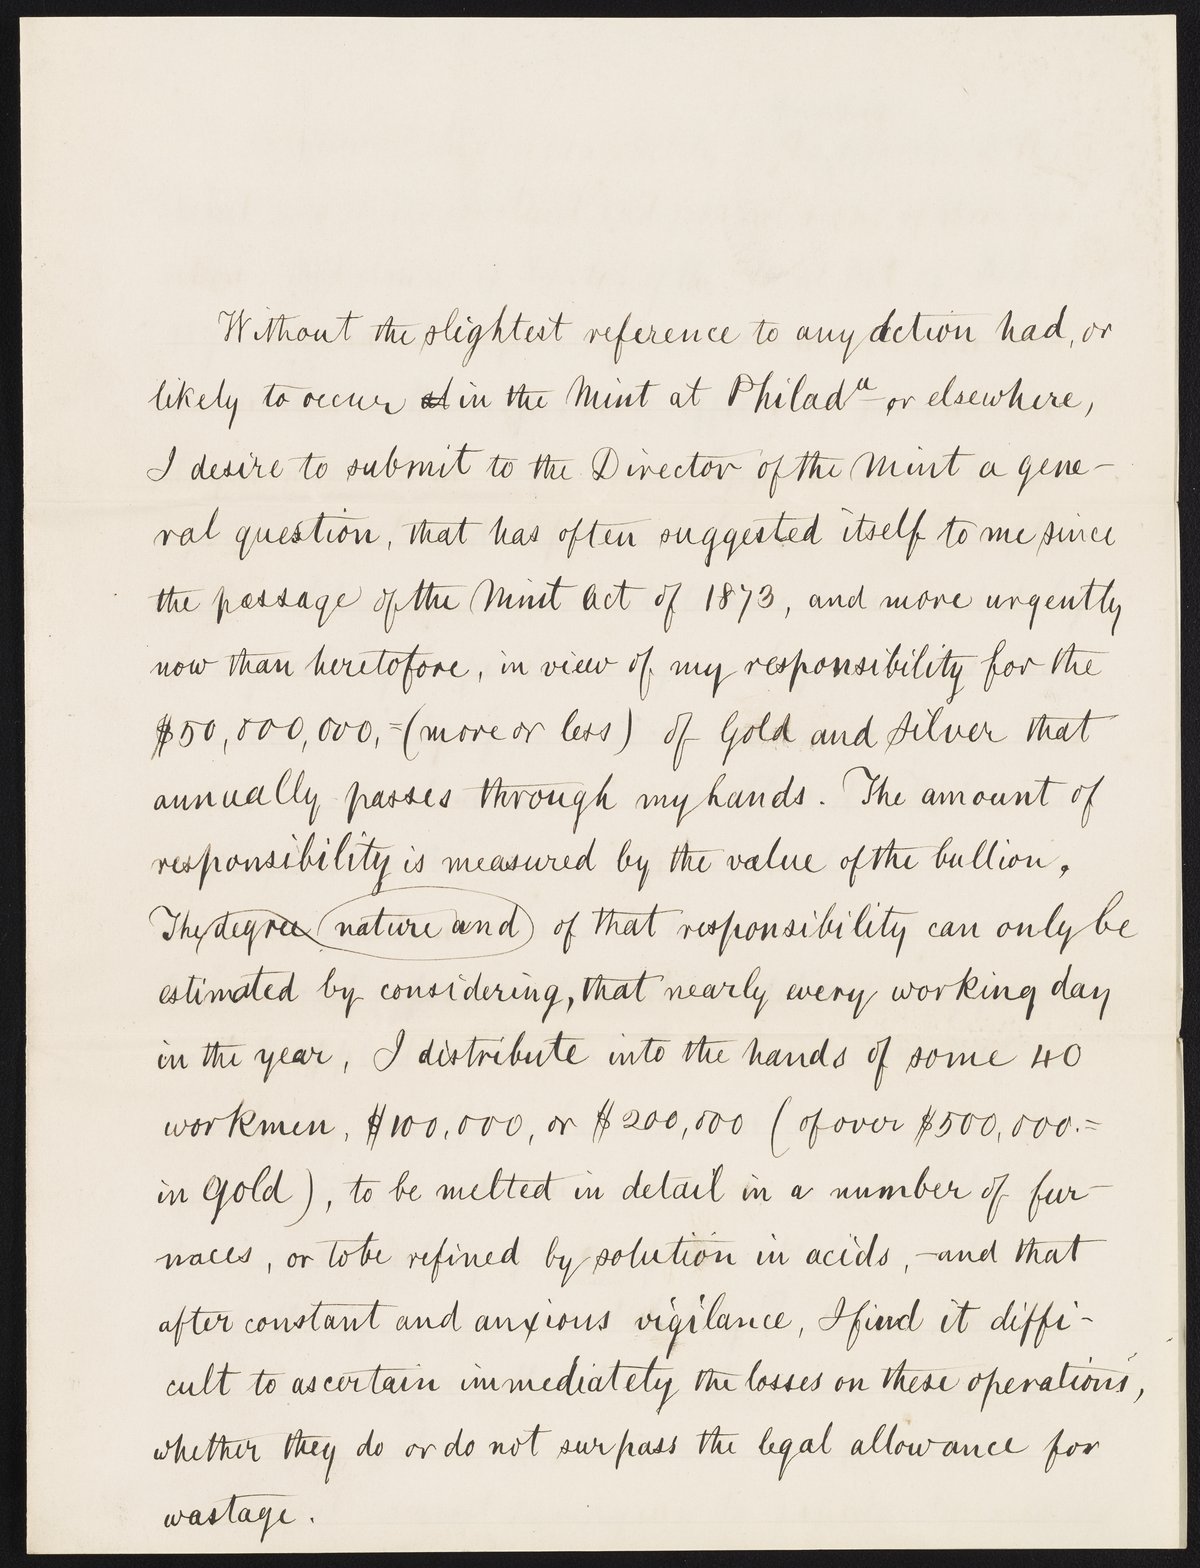 Without the slightest reference to any action had, or
likely to occur at in the Mint at Philadª or elsewhere,
I desire to submit to the Director of the Mint a gene-
ral question, that has often suggested itself to me since
the passage of the Mint Act of 1873, and more urgently
now than heretofore, in view of my responsibility for the
$50,000,000,= (more or less) of Gold and Silver that
annually passes through my hands. The amount of
responsibility is measured by the value of the bullion.
The degree (nature and) of that responsibility can only be
estimated by considering, that nearly every working day
in the year, I distribute into the hands of some 40
workmen, $100,000, or $200,000 (of over $500,000.=
in Gold), to be melted in detail in a number of fur-
naces, or to be refined by solution in acids, -and that
after constant and anxious vigilance, I find it diffi-
cult to ascertain immediately the losses on these operations,
whether they do or do not surpass the legal allowance for
wastage.